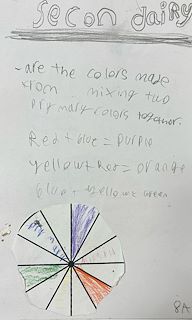 secon dairy
- are the colors made
from mixing two
primary colors together.
Red + blue = purple
yellow + Red = orange
blue + yellow = green
8A